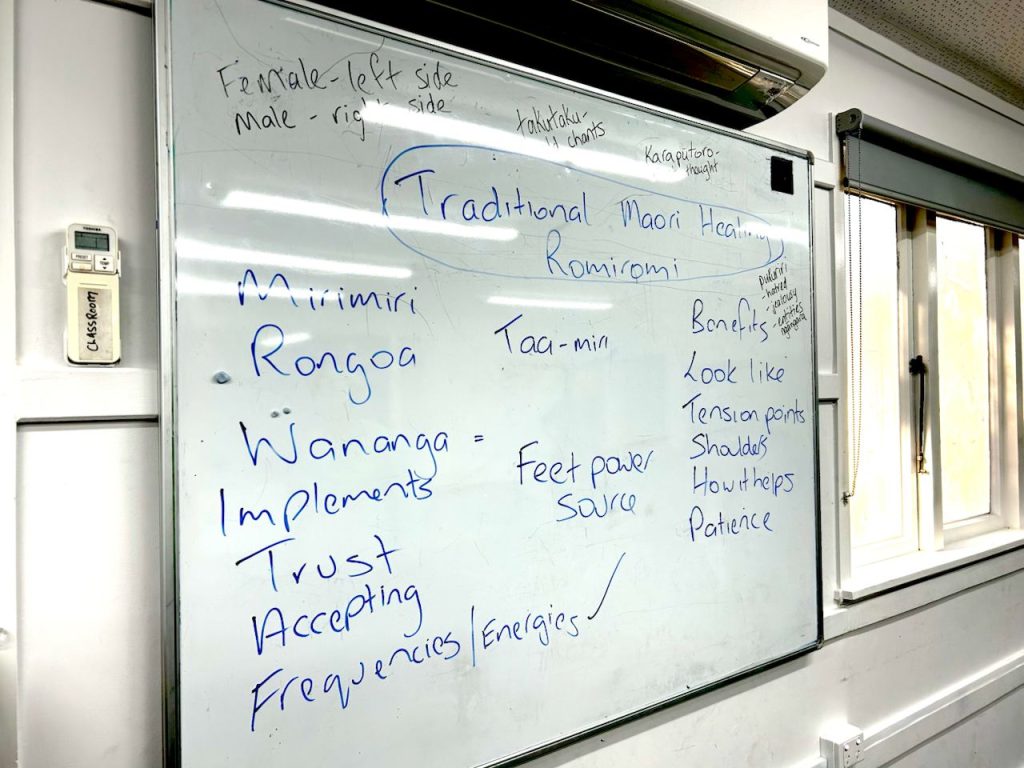 Female - left side
Male - right side
takutaku-
chants
Karaputoro-
thought
Traditional Maori Healing
Romiromi
Mirimiri
Rongoa
Wananga =
Implements
Trust
Accepting
Frequencies/Energies ✓
Taa-miri
Feet power
source
- hatred
- jealousy
- entities
Benefits
Look like
Tension points
Shoulders
How it helps
Patience
TOSHIBA
CLASSROOM